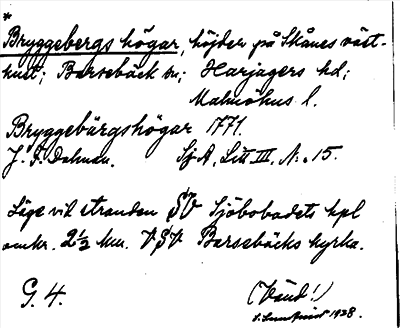 *
Bryggebergs högar, höjder på Skånes väst-
kust; Barsebäck sn; Harjagers hd;
Malmöhus l.
Bryggebärgshögar 1771.
J. F. Dahman. Sj A, Litt III, N:o 15.
Läge vid stranden SV Sjöbobadets hpl
omkr. 2 1/2 km. VSV Barsebäcks kyrka.
G. 4. (Vänd!)
1928.